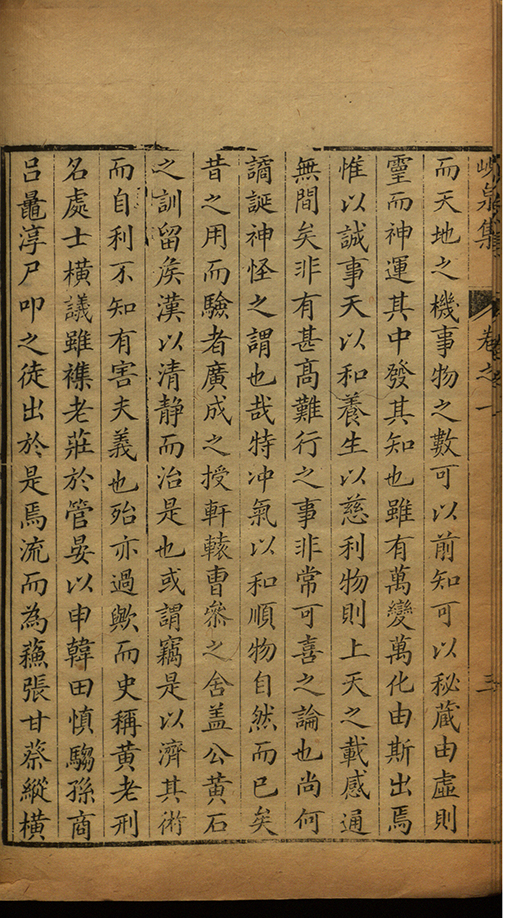 峴泉集 卷之一 三
而天地之機事物之數可以前知可以秘藏由虛則
靈而神運其中發其知也雖有萬變萬化由斯出焉
惟以誠事天以和養生以慈利物則上天之載感通
無間矣非有甚高難行之事非常可喜之論也尚何
譎誕神怪之謂也哉特冲氣以和順物自然而已矣
昔之用而驗者廣成之授軒轅曹叅之舍盖公黄石
之訓留矦漢以清静而治是也或謂竊是以濟其術
而自利不知有害夫義也殆亦過歟而史稱黄老刑
名處士橫議雖襍老莊於管晏以申韓田慎騶孫商
吕鼂淳尸叩之徒出於是焉流而為蘓張甘蔡縱橫